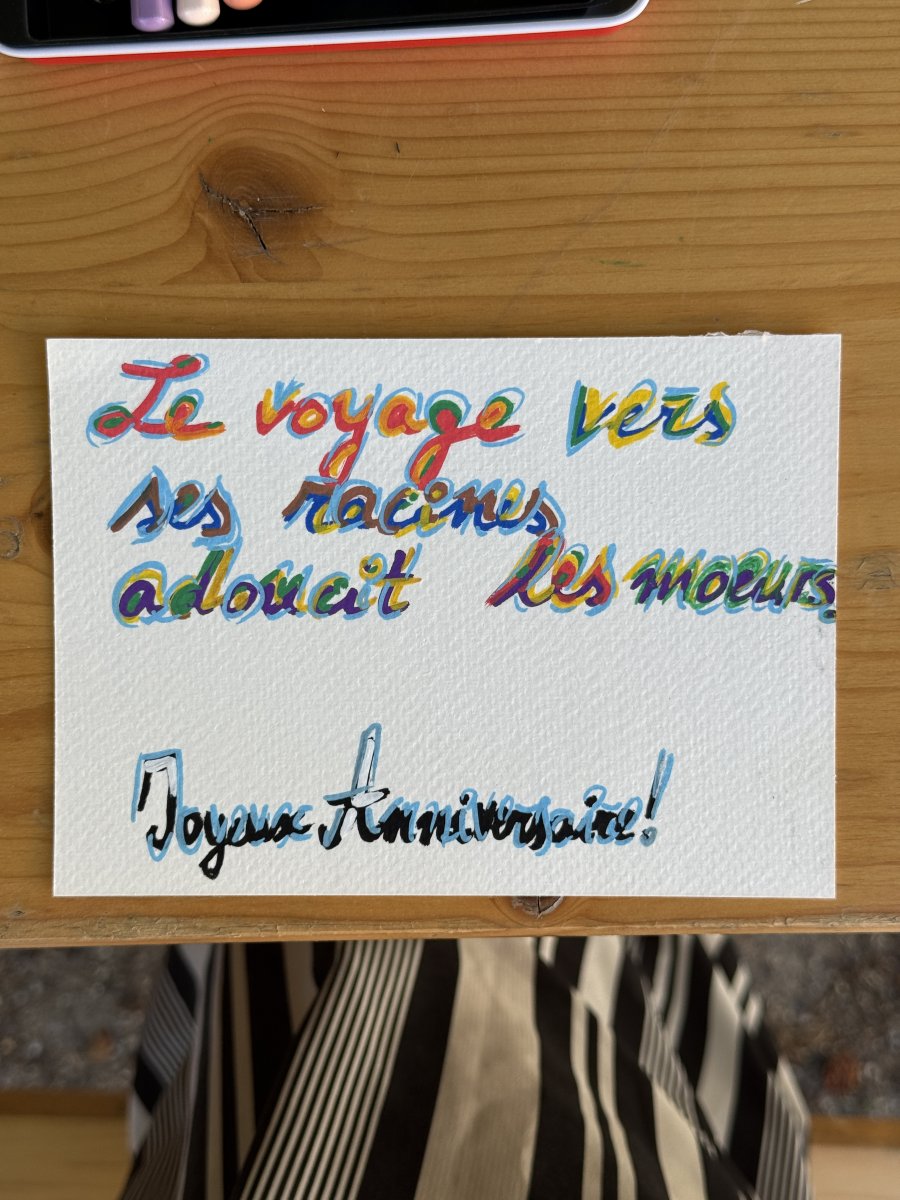 Le voyage vers
ses racines
adoucit les moeurs
Joyeux Anniversaire!